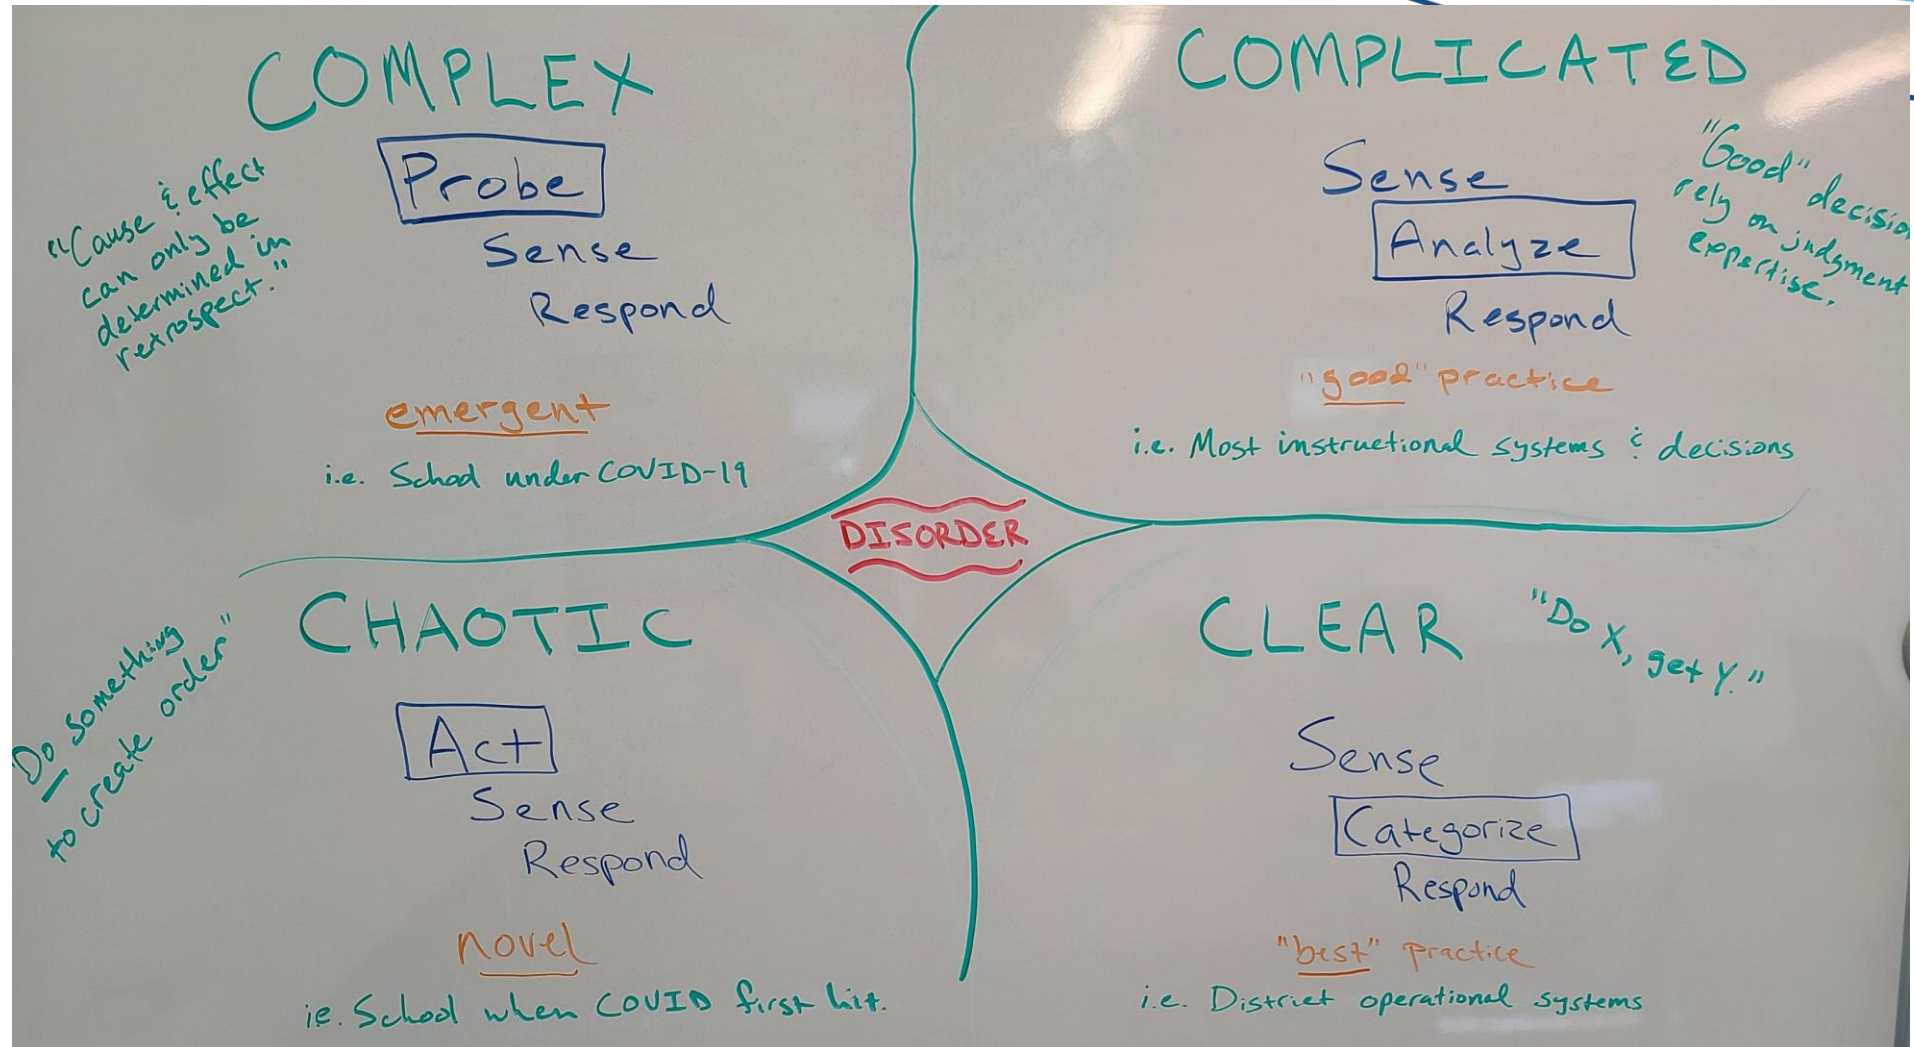 COMPLEX
Probe
Sense
Respond
"Cause & effect
can only be
determined in
retrospect."
emergent
i.e. School under COVID-19
COMPLICATED
Sense
Analyze
Respond
"Good" decision
rely on judgment
expertise.
"good" practice
i.e. Most instructional systems & decisions
DISORDER
CHAOTIC
"Do something
to create order"
Act
Sense
Respond
novel
ie. School when COVID first hit.
CLEAR
"Do X, get Y."
Sense
Categorize
Respond
"best" practice
i.e. District operational systems